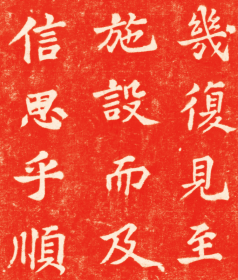 幾復見至
施設而及
信思乎順